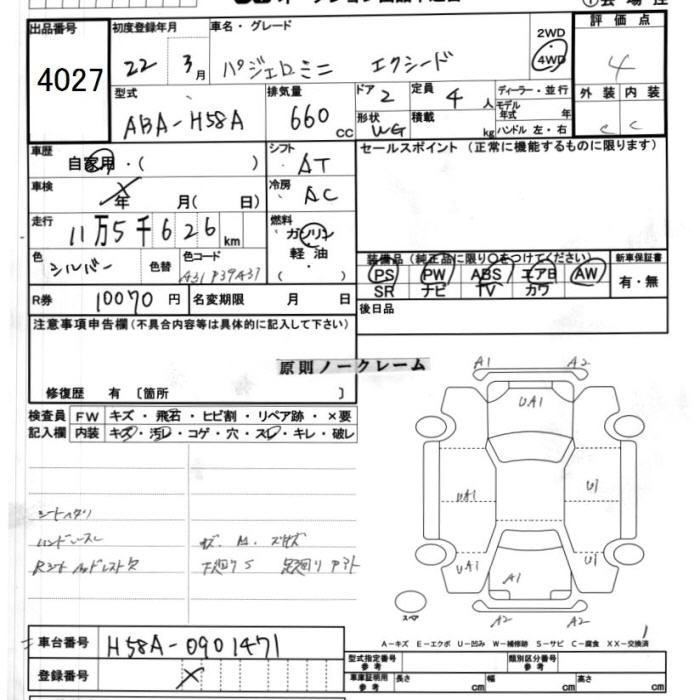 出品番号 初度登録年月 車名・グレード 2WD 評価点
4027 22 3月 パジェロミニ エクシード 4WD 4
型式 排気量 ドア 2 定員 4 人 ディーラー・並行 外装 内装
ABA-H58A 660 CC 形状 WG 積載 kg モデル年式 年 ハンドル 左・右 C C
車歴 シフト セールスポイント (正常に機能するものに限ります)
自家用・( ) AT
車検 冷房
年 月( 日) AC
走行 燃料
11万5千626km ガソリン
色 色替 色コード 軽油
シルバー A31P39A31 ・( )
装備品(純正品に限り○をつけてください) 新車保証書
PS PW ABS エアB AW 有・無
SR ナビ TV カワ
R券 10070円 名変期限 月 日 後日品
注意事項申告欄(不具合内容等は具体的に記入して下さい)
原則ノークレーム
修復歴 有 〔箇所 〕
検査員 FW キズ・飛石・ヒビ割・リペア跡・×要
記入欄 内装 キズ・汚レ・コゲ・穴・スレ・キレ・破レ
シートヘタリ
ハンドルスレ キズ.A.ズレキズ
Rシートヘッドレスト欠 下廻りS 足廻りアウト
A1 A2
UA1
UA1 U1
UA1 U1
A1
スペア A2 A2
車台番号 H58A-0901471
A-キズ E-エクボ U-凹み W-補修跡 S-サビ C-腐食 XX-交換済
登録番号
型式指定番号参考 類別区分番号参考
車庫証明用参考 長さ cm 幅 cm 高さ cm